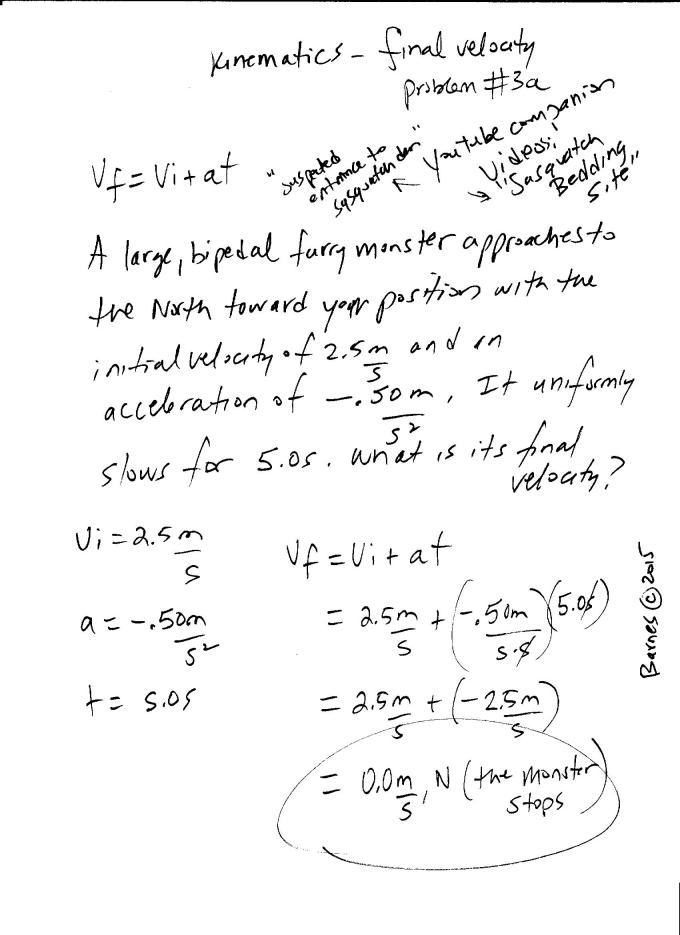 Kinematics - final velocity
problem #3a
Vf = Vi + at
"suspected
entrance to
sasquatch den"
← Youtube companion
Videos:
→ "Sasquatch
Bedding
Site"
A large, bipedal furry monster approaches to
the North toward your position with the
initial velocity of 2.5m/s and an
acceleration of -.50m/s². It uniformly
slows for 5.0s. What is its final
velocity?
Vi = 2.5m/s
a = -.50m/s²
t = 5.0s
Vf = Vi + at
= 2.5m/s + (-.50m/s·s)(5.0s)
= 2.5m/s + (-2.5m/s)
= 0.0m/s, N (the monster
stops)
Barnes © 2015